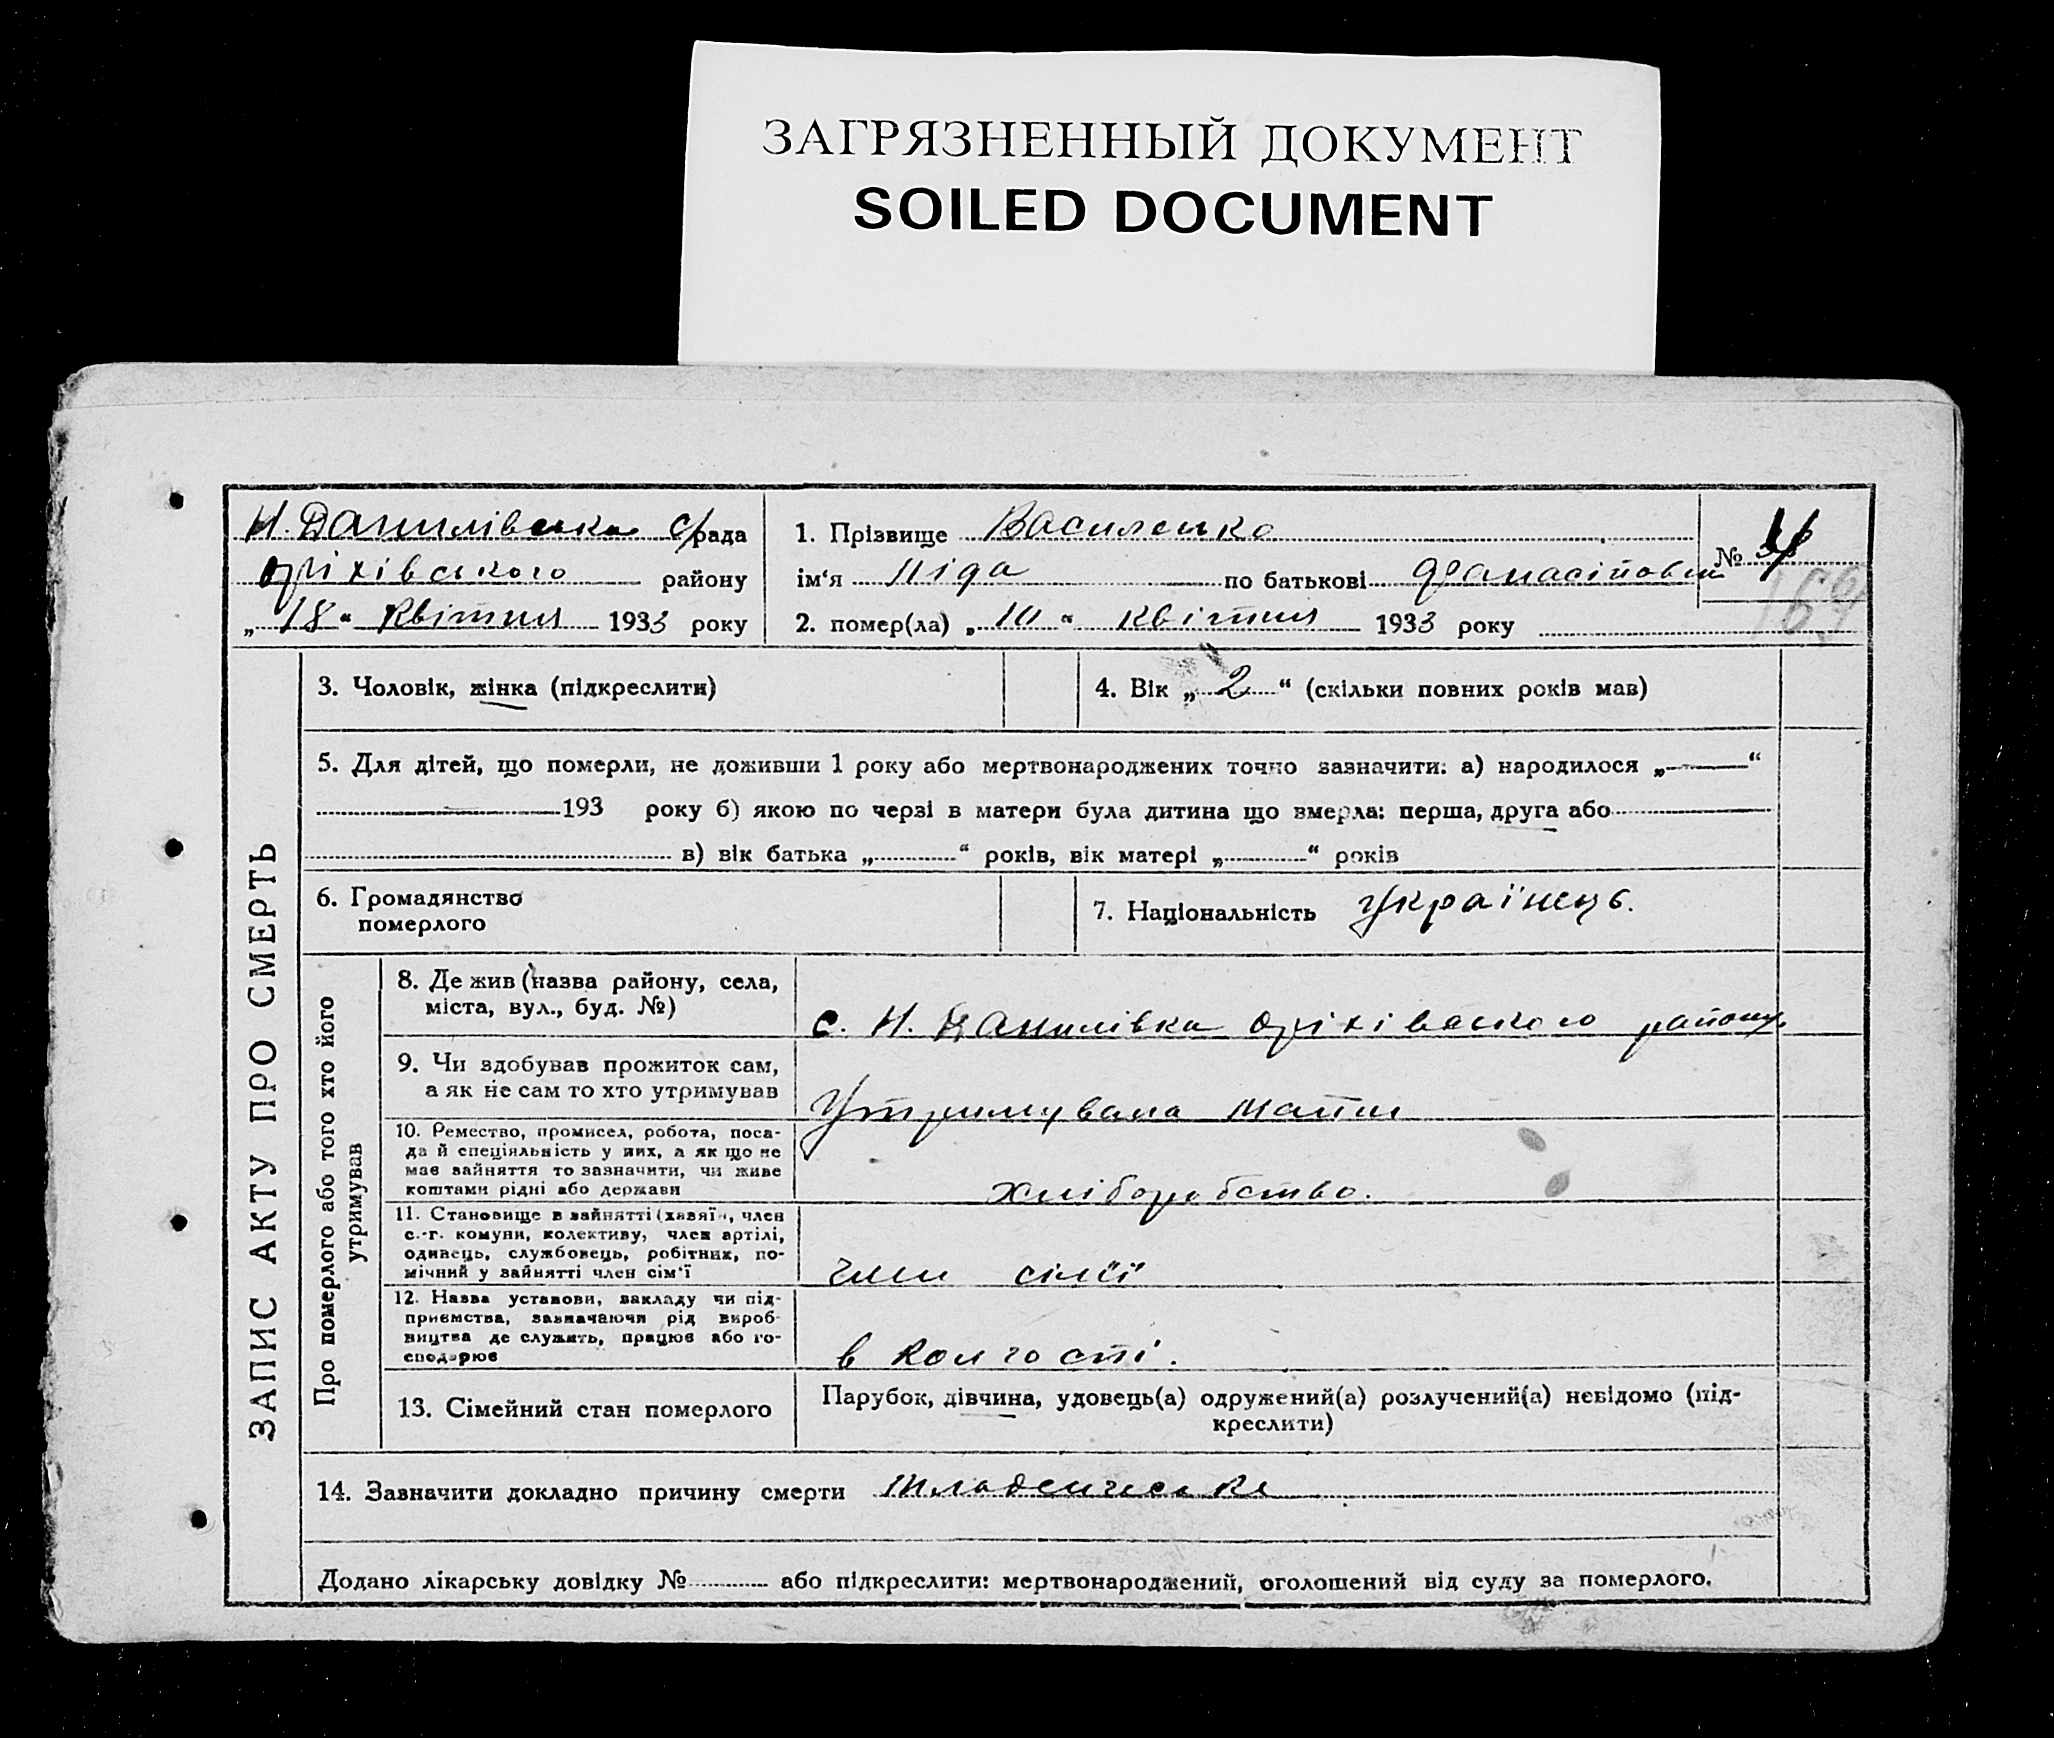 ЗАГРЯЗНЕННЫЙ ДОКУМЕНТ
SOILED DOCUMENT
Н. Данилівська с/рада
Оріхівського району
„18“ квітня 1933 року
1. Прізвище Василенко
ім‘я Ліда по батькові
2. помер(ла) „ “ квітня 1933 року
№
169
ЗАПИС АКТУ ПРО СМЕРТЬ
3. Чоловік, жінка (підкреслити)
4. Вік „2“ (скільки повних років мав)
5. Для дітей, що померли, не доживши 1 року або мертвонароджених точно зазначити: а) народилося „—“
193 року б) якою по черзі в матери була дитина що вмерла: перша, друга або
в) вік батька „ “ років, вік матері „ “ років
6. Громадянство
померлого
7. Національність Українець.
Про померлого або того хто його
утримував
8. Де жив (назва району, села,
міста, вул., буд. №)
с. Н. Данилівка Оріхівського району
9. Чи здобував прожиток сам,
а як не сам то хто утримував
Утримувала мати
10. Ремество, промисел, робота, поса-
да й спеціяльність у них, а як що не
має зайняття то зазначити, чи живе
коштами рідні або держави
хліборобство.
11. Становище в зайнятті (хазяїн, член
с.-г. комуни, колективу, член артілі,
одинець, службовець, робітник, по-
мічний у зайнятті член сім‘ї
член сім'ї
12. Назва установи, закладу чи під-
приємства, зазначаючи рід вироб-
ництва де служить, працює або го-
сподарює
в колгоспі.
13. Сімейний стан померлого
Парубок, дівчина, удовець(а) одружений(а) розлучений(а) невідомо (під-
креслити)
14. Зазначити докладно причину смерти младенческе
Додано лікарську довідку № або підкреслити: мертвонароджений, оголошений від суду за померлого.